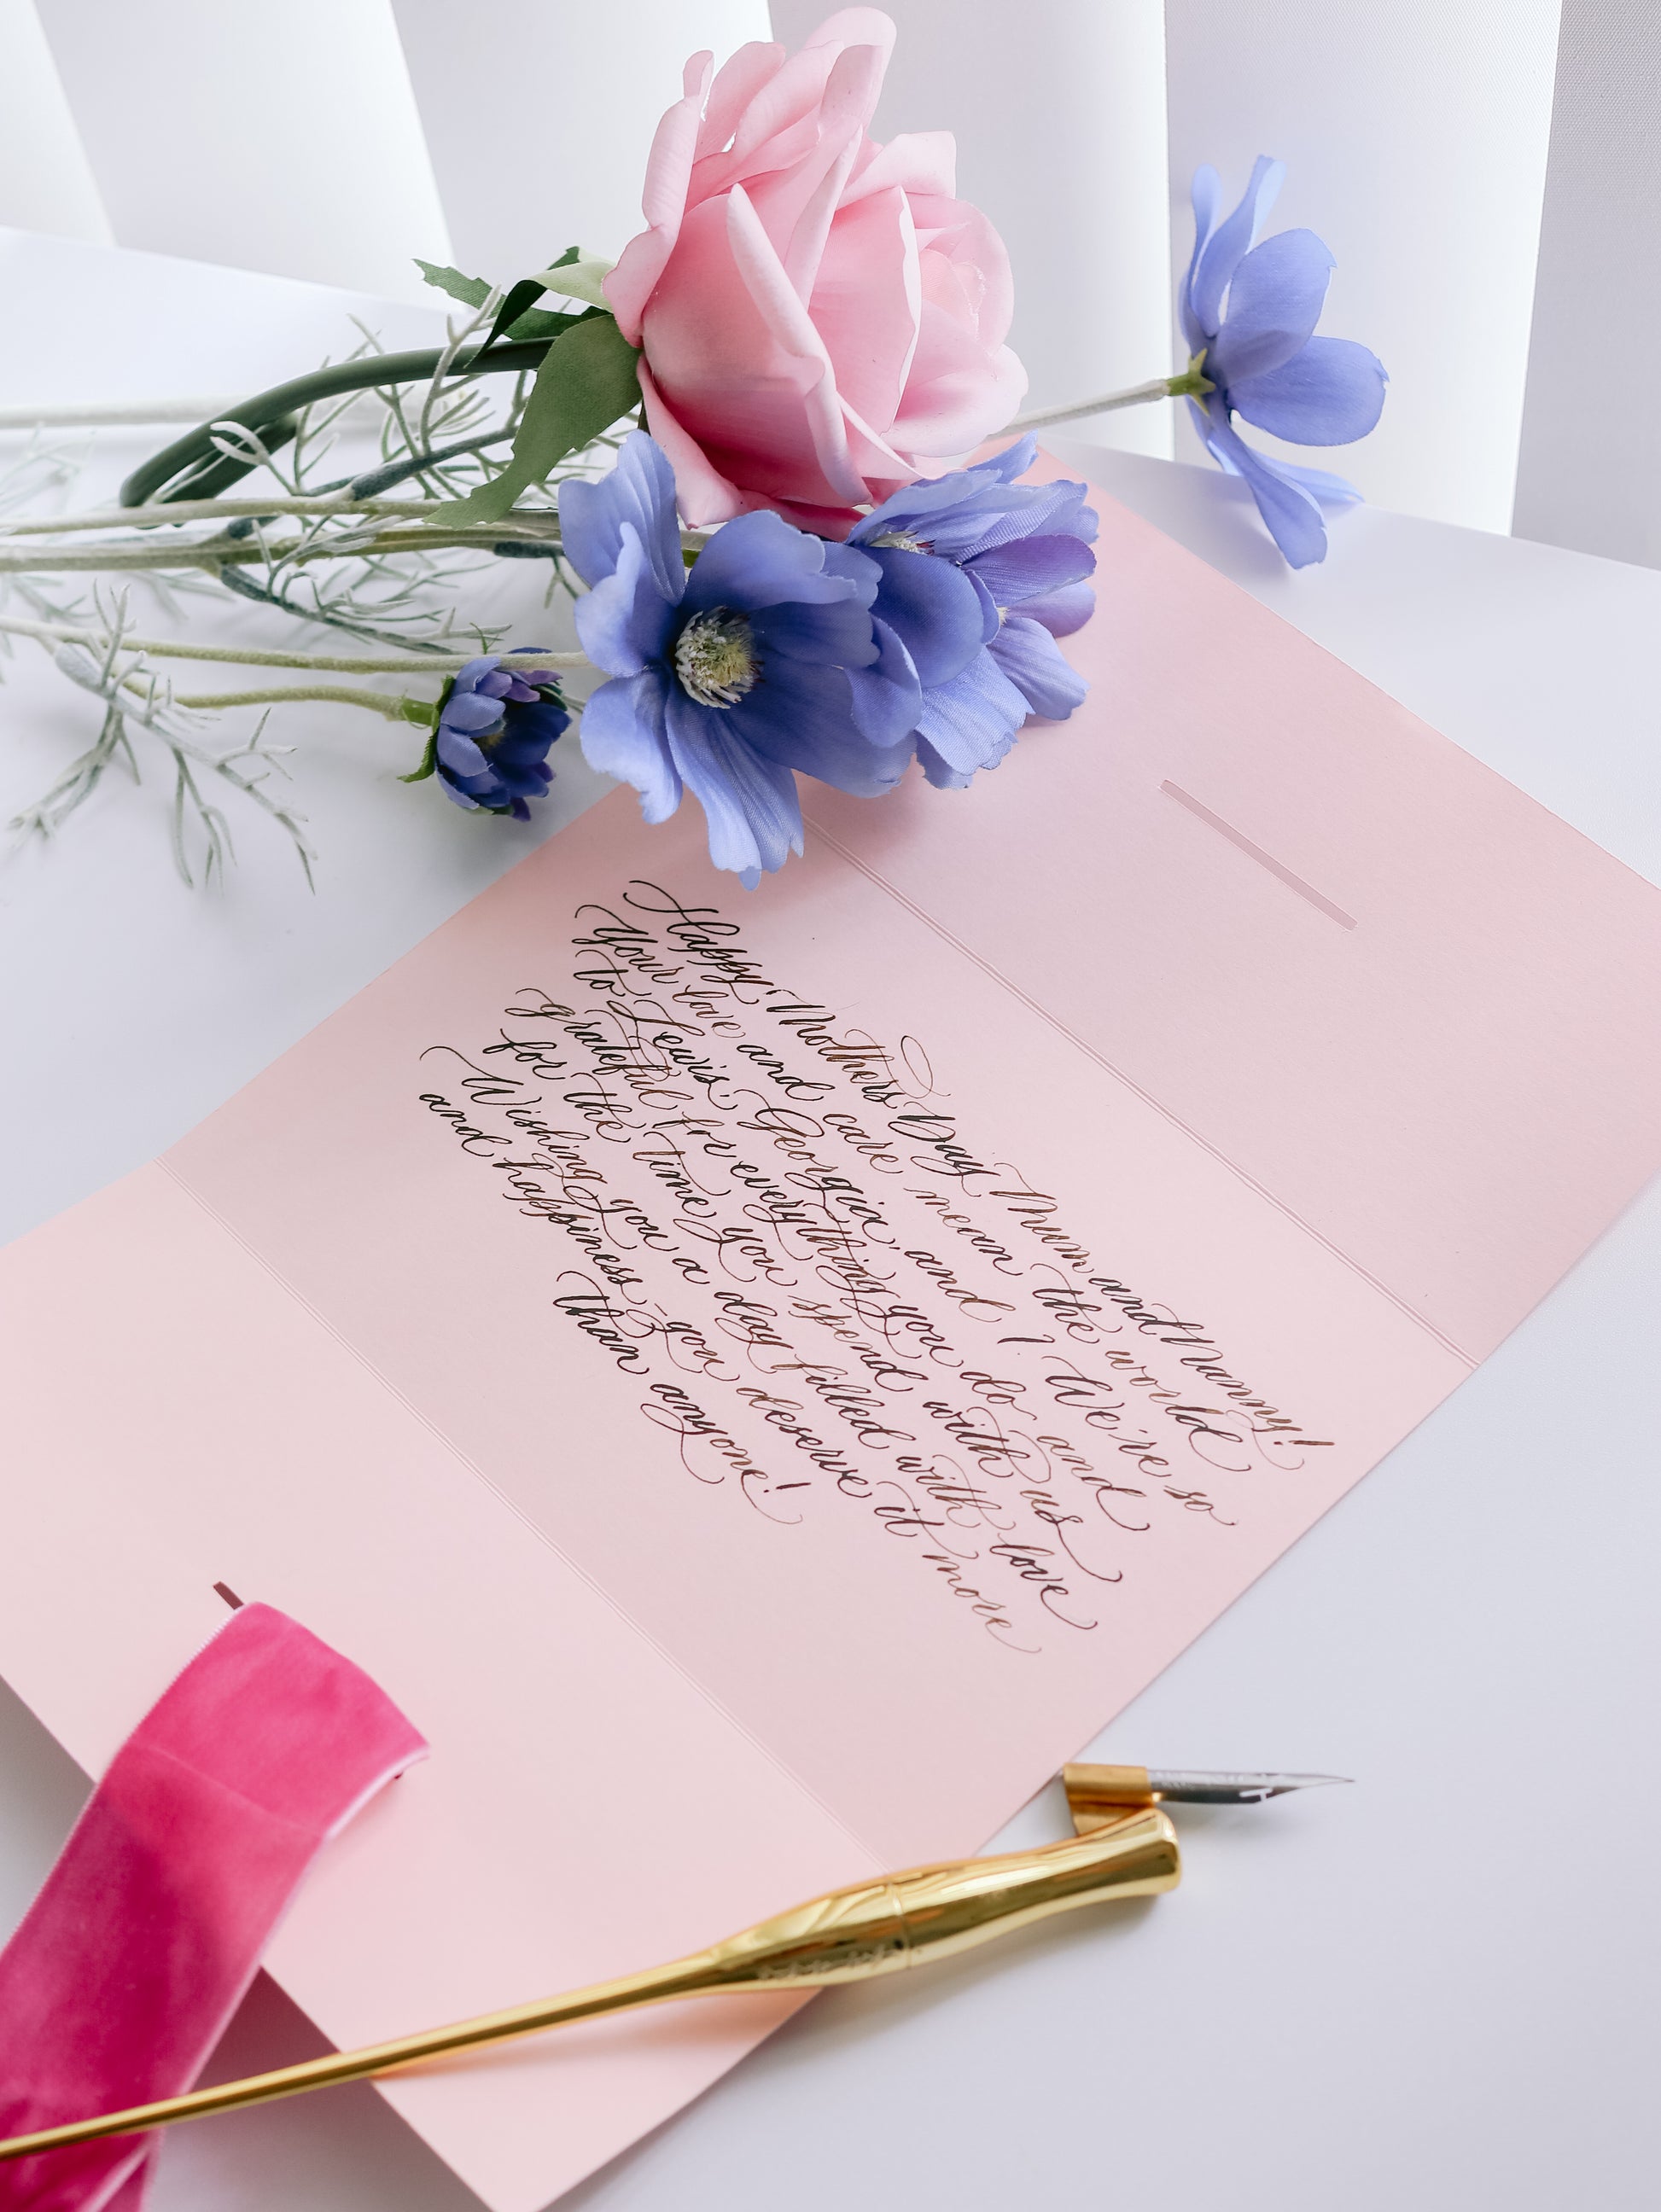 Happy Mothers Day, Mum and Nanny!
Your love and care mean the world
to Lewis, Georgia, and I. We're so
grateful for everything you do and
for the time you spend with us
Wishing you a day filled with love
and happiness - you deserve it more
than anyone!